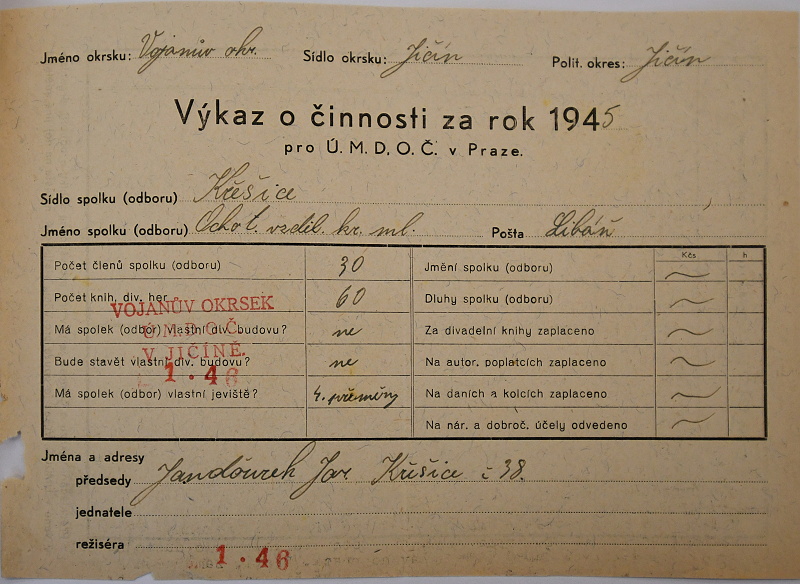 Jméno okrsku: Vojanův okr. Sídlo okrsku: Jičín Polit. okres: Jičín
Výkaz o činnosti za rok 1945
pro Ú. M. D. O. Č. v Praze.
Sídlo spolku (odboru) Křešice
Jméno spolku (odboru) Ochot. vzděl. kr. ml. Pošta Libáň
Kčs h
Počet členů spolku (odboru) 30 Jmění spolku (odboru)
Počet knih, div. her 60 Dluhy spolku (odboru)
VOJANŮV OKRSEK
Má spolek (odbor) vlastní div. budovu? ne Za divadelní knihy zaplaceno
Ú. M. D. O. Č.
V JIČÍNĚ.
Bude stavět vlastní div. budovu? ne Na autor. poplatcích zaplaceno
1 · 46
Má spolek (odbor) vlastní jeviště? 4. přeměny Na daních a kolcích zaplaceno
Na nár. a dobroč. účely odvedeno
Jména a adresy
předsedy Jandourek Jar. Křešice č 38.
jednatele
režiséra
1 · 46